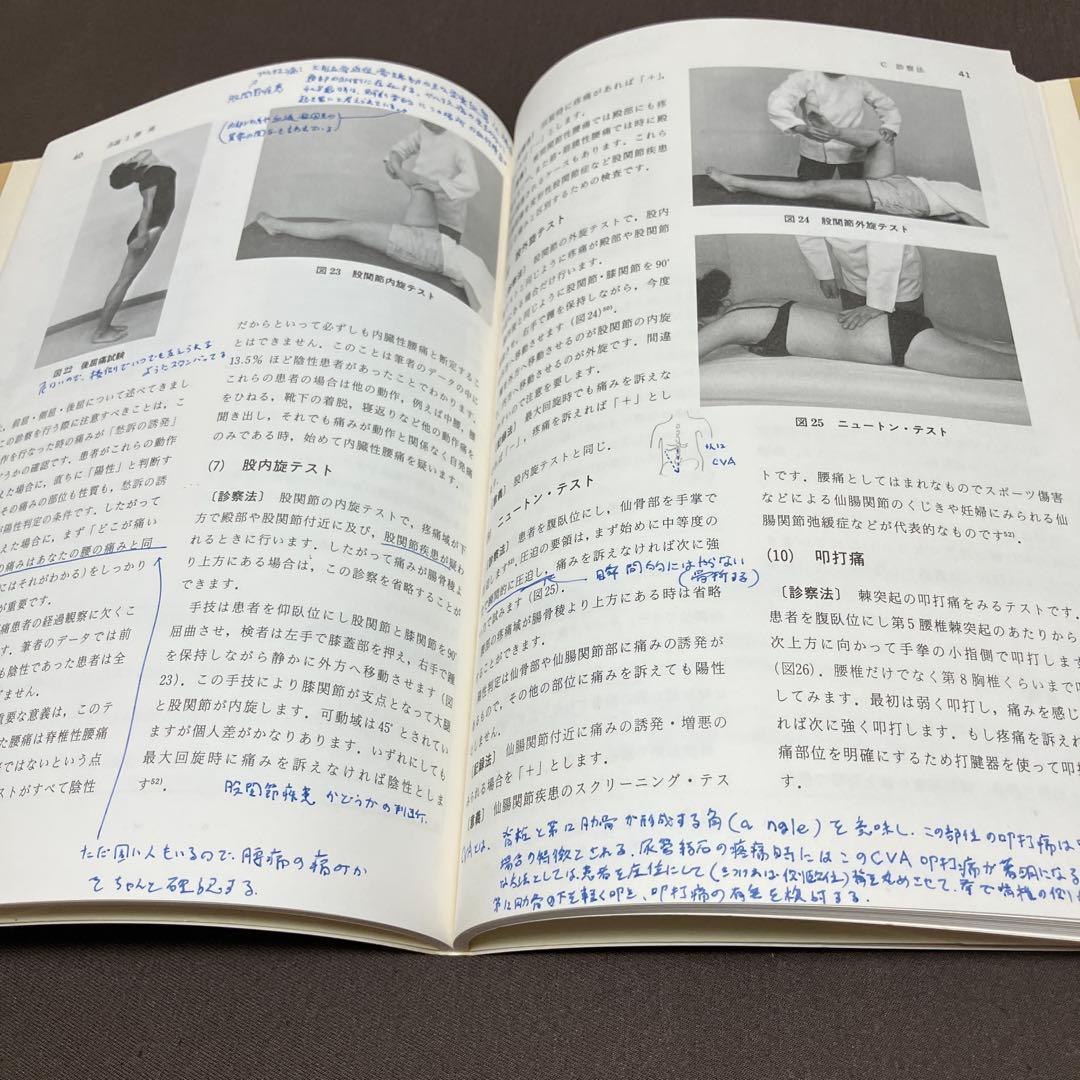 40
図22 後屈痛試験
た,前屈・側屈・後屈について述べてきまし
この診察を行う際に注意すべきことは,こ
を行なった時の痛みが「愁訴の誘発」
どうかの確認です.患者がこれらの動作
えた場合に,直ちに「陽性」と判断す
その痛みの部位も性質も,愁訴の誘
が陽性判定の条件です.したがって
えた場合に,まず「どこが痛い
の痛みはあなたの腰の痛みと同
にはそれがわかる)をしっかり
が重要です.
痛患者の経過観察に欠くこ
す.筆者のデータでは前
も陰性であった患者は全
ぎません.
重要な意義は,このテ
た腰痛は脊椎性腰痛
ではないという点
ストがすべて陰性
ただ固い人もいるので、腰痛の痛みか
をちゃんと確認する.
股関節疾患
図23 股関節内旋テスト
だからといって必ずしも内臓性腰痛と断定するこ
とはできません.このことは筆者のデータの中に
13.5%ほど陰性患者があったことでわかります.
これらの患者の場合は他の動作,例えば中腰,腰
をひねる,靴下の着脱,寝返りなど他の動作痛を
聞き出し,それでも痛みが動作と関係なく自発痛
のみである時,始めて内臓性腰痛を疑います.
(7) 股内旋テスト
〔診察法〕 股関節の内旋テストで,疼痛域が下
方で殿部や股関節付近に及び,股関節疾患が疑わ
れるときに行います.したがって痛みが腸骨稜よ
り上方にある場合は,この診察を省略することが
できます.
手技は患者を仰臥位にし股関節と膝関節を90°
屈曲させ,検者は左手で膝蓋部を押え,右手で踵
を保持しながら静かに外方へ移動させます(図
23).この手技により膝関節が支点となって大腿
と股関節が内旋します.可動域は45°とされてい
ますが個人差がかなりあります.いずれにしても
最大回旋時に痛みを訴えなければ陰性としま
す52).
股関節疾患かどうかの判断.
C 診察法 41
旋時に疼痛があれば「+」
とします.
股関節性腰痛では殿部にも疼
また筋・筋膜性腰痛では時に殿
されるケースもあります.これら
変形性股関節症など股関節疾患
区別するための検査です.
股外旋テスト
股関節の外旋テストで,股内
ストと同じように疼痛が殿部や股関節
にある場合だけ行います.
と同じように股関節・膝関節を90°
せ,右手で踵を保持しながら,今度
へ移動させます(図24)50).
外方へ移動させるのが股関節の内旋
へ移動させるのが外旋です.間違
いので注意を要します.
最大回旋時でも痛みを訴えな
「-」,疼痛を訴えれば「+」とし
股内旋テストと同じ.
ニュートン・テスト
患者を腹臥位にし,仙骨部を手掌で
圧迫します52).圧迫の要領は,まず始めに中等度の
で瞬間的に圧迫し,痛みを訴えなければ次に強
で試みます(図25).
の疼痛域が腸骨稜より上方にある時は省略
ことができます.
陽性判定は仙骨部や仙腸関節部に痛みの誘発が
るもので,その他の部位に痛みを訴えても陽性
しません.
〔記録法〕 仙腸関節付近に痛みの誘発・増悪の
られる場合を「+」とします.
〔意義〕 仙腸関節疾患のスクリーニング・テス
瞬間的にはやらない
(骨折する)
CVA
図24 股関節外旋テスト
図25 ニュートン・テスト
トです.腰痛としてはまれなものでスポーツ傷害
などによる仙腸関節のくじきや妊婦にみられる仙
腸関節弛緩症などが代表的なものです52).
(10) 叩打痛
〔診察法〕 棘突起の叩打痛をみるテストです.
患者を腹臥位にし第5腰椎棘突起のあたりから
次上方に向かって手拳の小指側で叩打します
(図26).腰椎だけでなく第8胸椎くらいまで叩
してみます.最初は弱く叩打し,痛みを感じ
れば次に強く叩打します.もし疼痛を訴えれ
痛部位を明確にするため打腱器を使って叩打
す.
CVAとは、脊柱と第12肋骨が形成する角(a ngle)を意味し、この部位の叩打痛は
場合の特徴とされる.尿管結石の疼痛時にはこのCVA叩打痛が著明になる
方法としては、患者を座位にして(あるいは側臥位)背を丸めさせて、
第12肋骨の下を軽く叩き、叩打痛の有無を検討する.